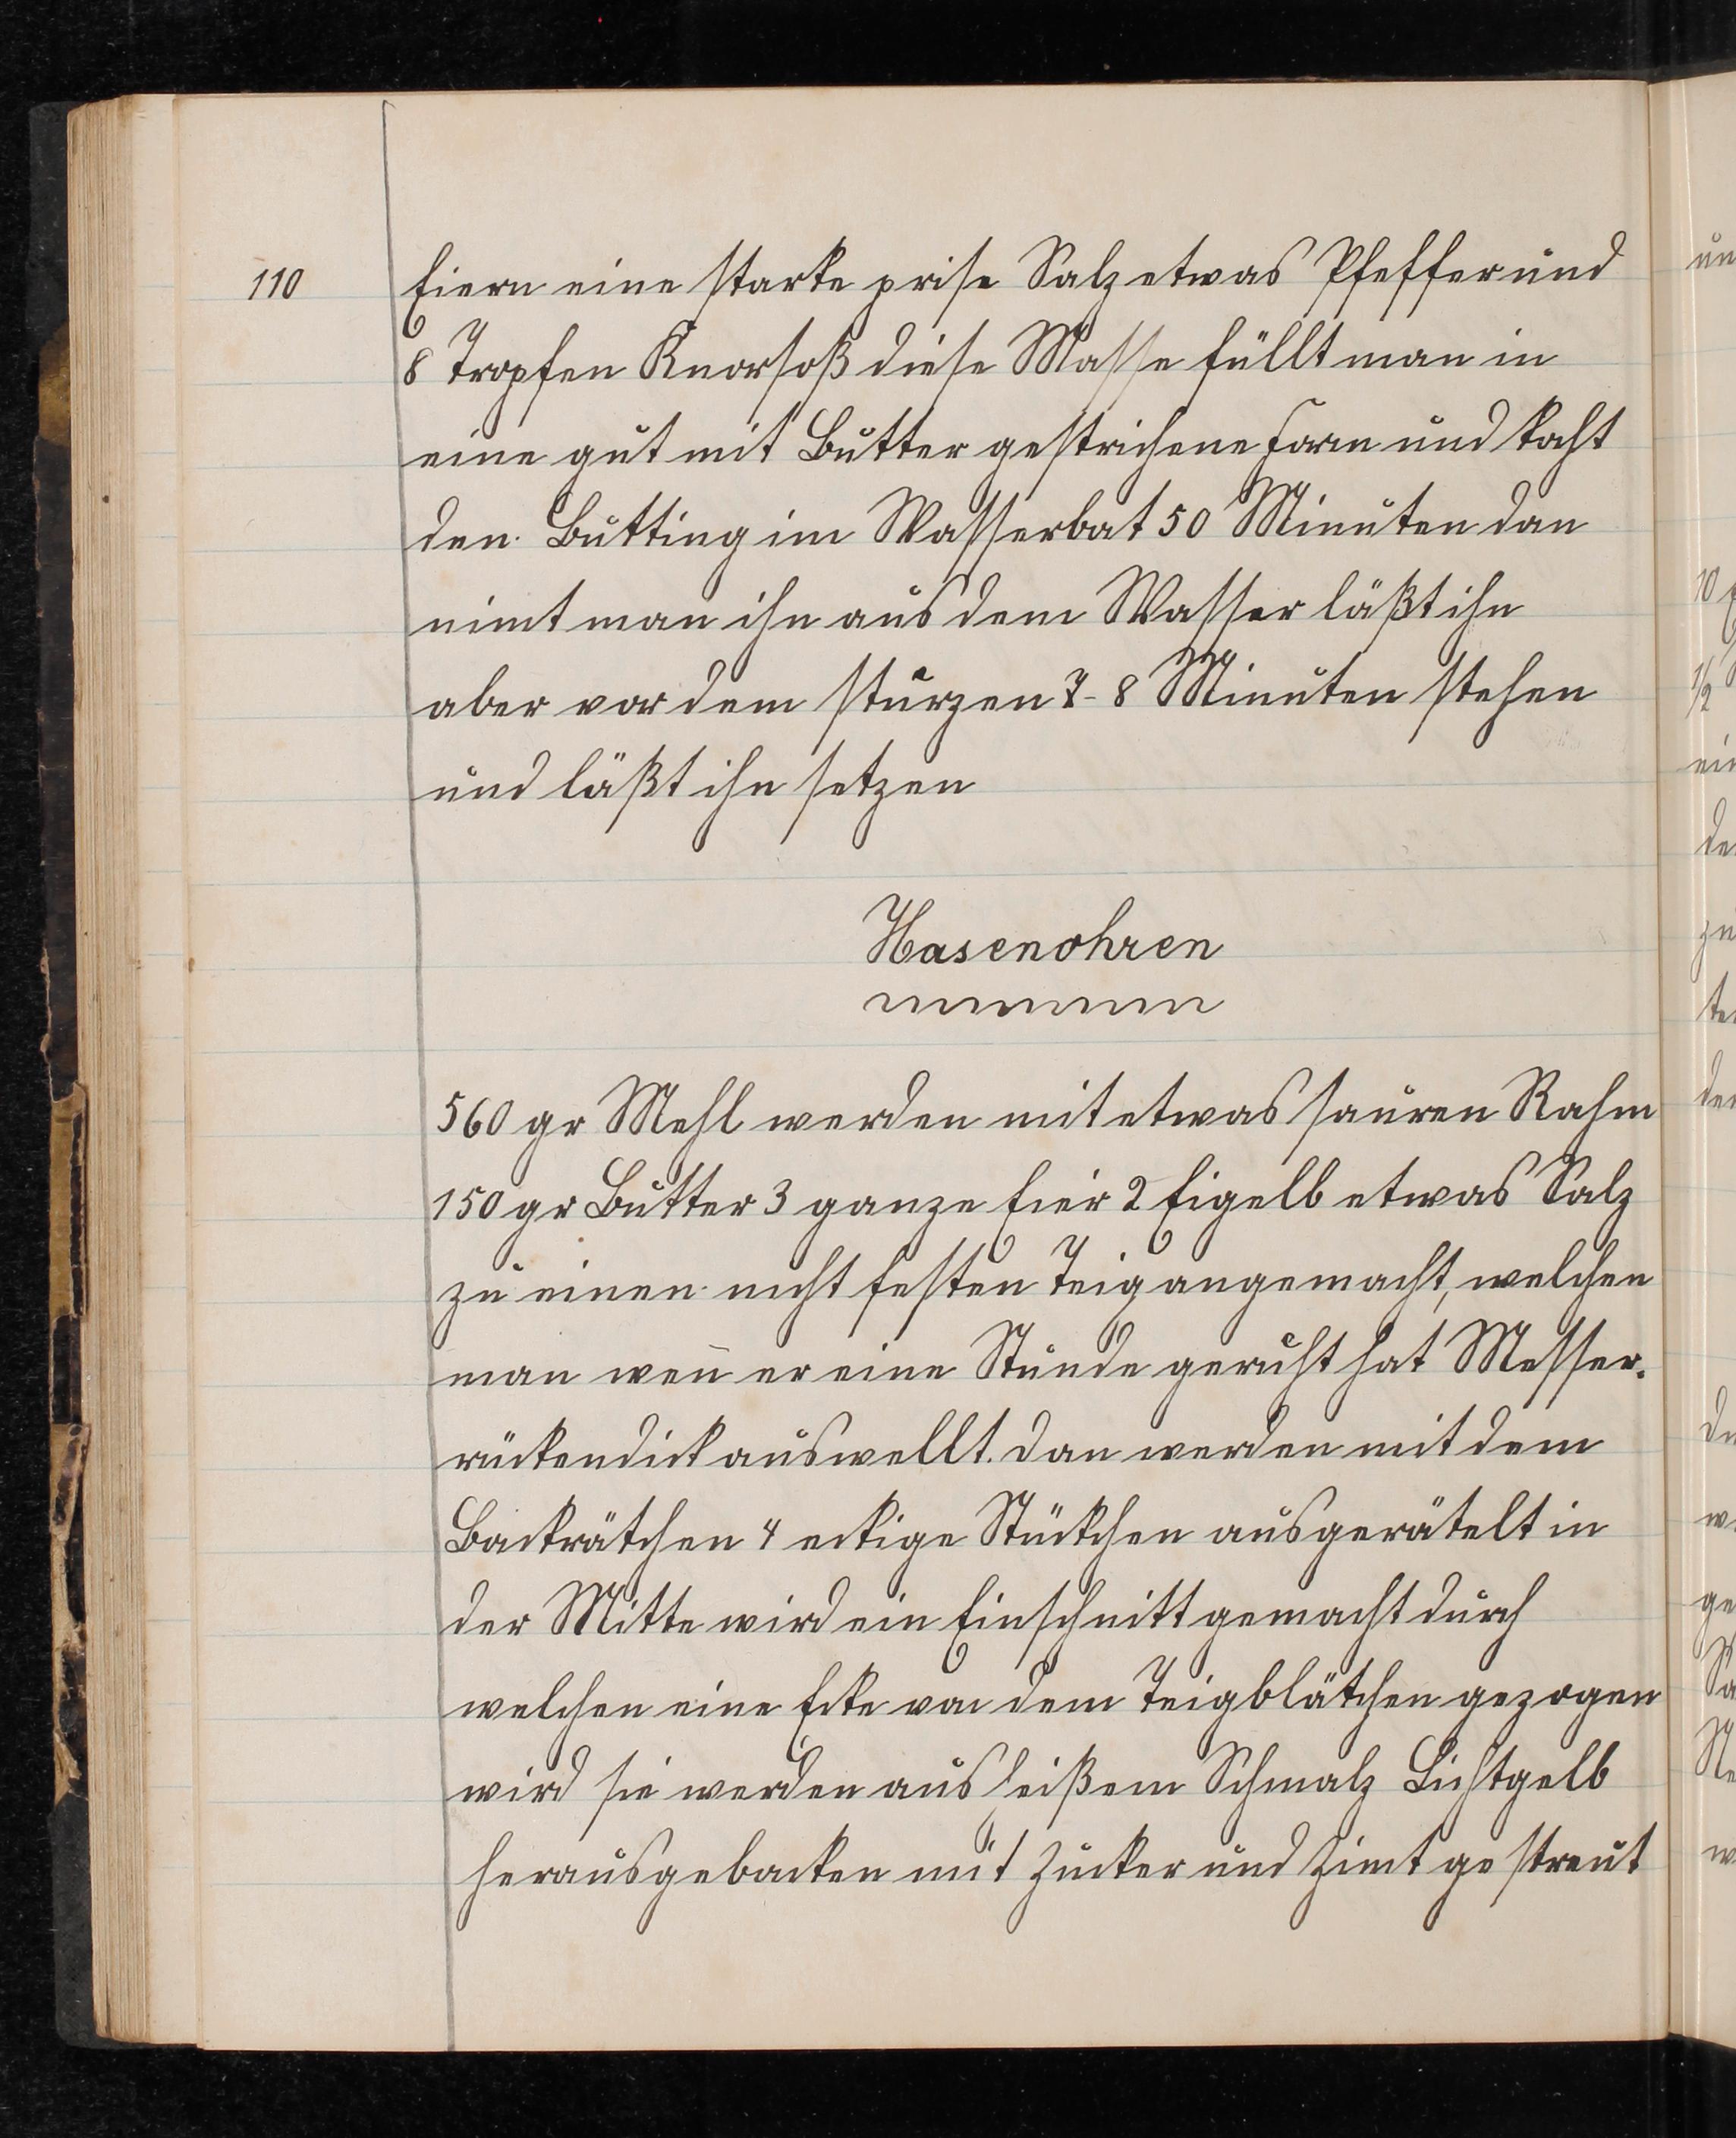 110
Eiern eine starke prise Salz etwas Pfeffer und
8 Tropfen Knorsoß diese Masse füllt man in
eine gut mit Butter gestrichene Form und kocht
den Butting im Wasserbat 50 Minuten dan
nimt man ihn aus dem Wasser läßt ihn
aber vor dem stürzen 7-8 Minuten stehen
und läßt ihn setzen
Hasenohren
560 gr Mehl werden mit etwas sauren Rahm
150 gr Butter 3 ganze Eier 2 Eigelb etwas Salz
zu einen nicht festen Teig angemacht, welchen
man wen̄ er eine Stunde geruht hat Messer-
rückendick auswellt. Dan werden mit dem
Backrätchen 4 eckige Stückchen ausgerätelt in
der Mitte wird ein Einschnitt gemacht durch
welchen eine Ecke von dem Teigblätchen gezogen
wird sie werden aus heißem Schmalz Lichtgelb
herausgebacken mit Zucker und Zimt gestreut